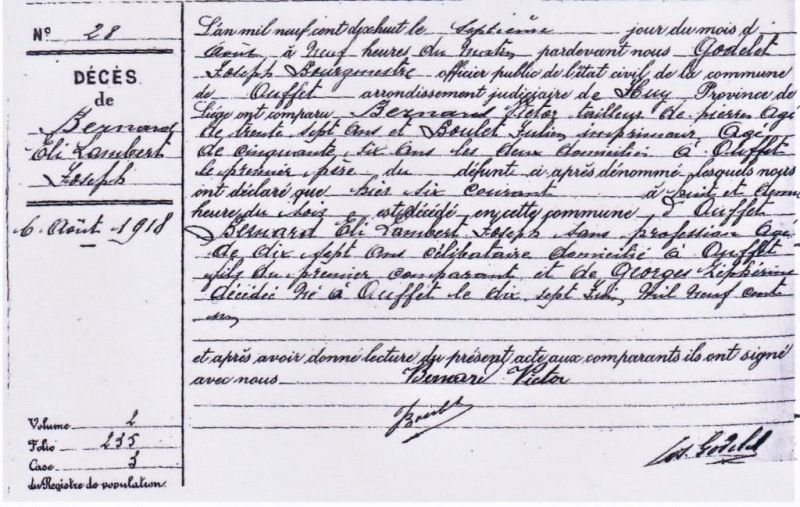 Nº 28
DÉCÈS
de
Bernard
Eli Lambert
Joseph
6 Août 1918
Volume 2
Folio 235
Case 3
du Registre de population.
L'an mil neuf cent dixhuit le septième jour du mois d
Août à Neuf heures du Matin pardevant nous Godelet
Joseph Bourgmestre officier public de l'état civil de la commune
de Ouffet arrondissement judiciaire de Huy Province de
Liége ont comparu Bernard Victor tailleur de pierres Agé
de trente sept ans et Boulet Julien imprimeur Agé
de cinquante six ans les deux domiciliés à Ouffet
le premier père du défunt ci après dénommé lesquels nous
ont déclaré que hier six courant à huit et demie
heure du soir est décédé en cette commune d Ouffet
Bernard Eli Lambert Joseph sans profession Agé
de dix sept ans célibataire domicilié à Ouffet
fils du premier comparant et de Georges Zéphérine
décidée Né à Ouffet le dix sept Juin Mil Neuf cent
un
et après avoir donné lecture du présent acte aux comparants ils ont signé
avec nous Bernard Victor
Boulet
Jos. Godelet